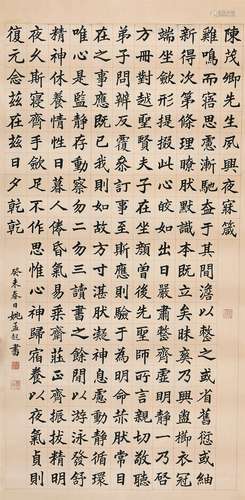 陳茂卿先生夙興夜寐箴
雞鳴而寤思慮漸馳盍于其間澹以整之或省舊愆或紬
新得次第條理瞭然默識本既立矣昧爽乃興盥櫛衣冠
端坐斂形提掇此心皦如出日嚴肅整齊虛明靜一乃啓
方冊對越聖賢夫子在坐顏曾後先聖師所言親切敬聽
弟子問辨反覆參訂事至斯應則驗于為明命赫然常目
在之事應既已我則如故方寸湛然凝神息慮動靜循環
唯心是監靜存動察勿貳勿參讀書之餘間以游泳發舒
精神休養情性日暮人倦昏氣易乘齋莊正齊振拔精明
夜久斯寢齊手斂足不作思惟心神歸宿養以夜氣貞則
復元念茲在茲日夕乾乾
癸未春日姚孟起書